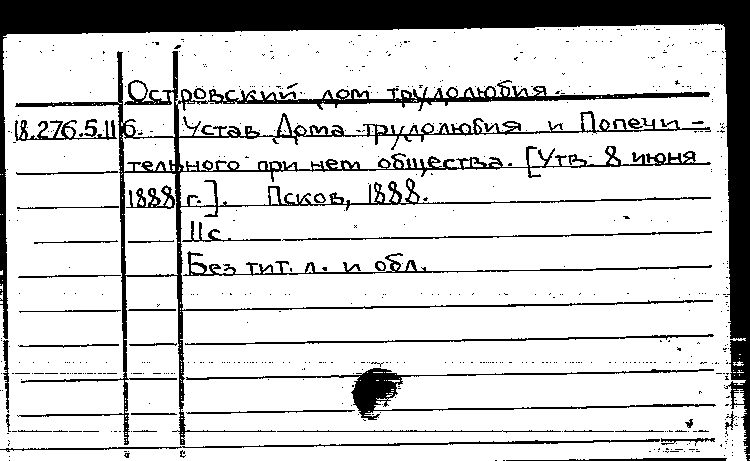 Островский дом трудолюбия.
18.276.5.116. Устав Дома трудолюбия и Попечи-
тельного при нем общества. [Утв. 8 июня
1888 г.]. Псков, 1888.
11 с.
Без тит. л. и обл.